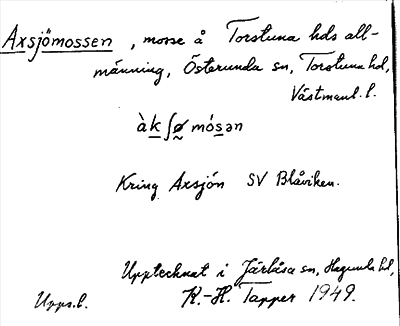 Axsjömossen, mosse å Torstuna hds all-
männing, Österunda sn, Torstuna hd,
Västmanl. l.
àkʃø̰ mósən
Kring Axsjön SV Blåviken.
Upptecknat i Järlåsa sn, Hagunda hd,
Upps. l. K.-H. Tapper 1949.